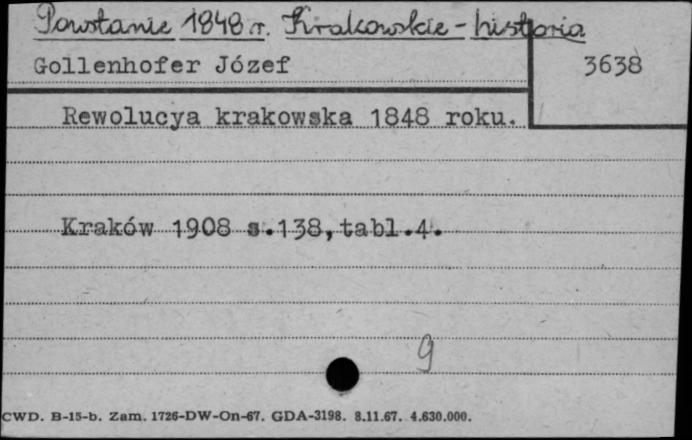 Powstanie 1848 r. Krakowskie - historia
Gollenhofer Józef 3638
Rewolucya krakowska 1848 roku.
Kraków 1908 s.138, tabl.4.
9
CWD. B-15-b. Zam. 1726-DW-On-67. GDA-3198. 8.11.67. 4.630.000.